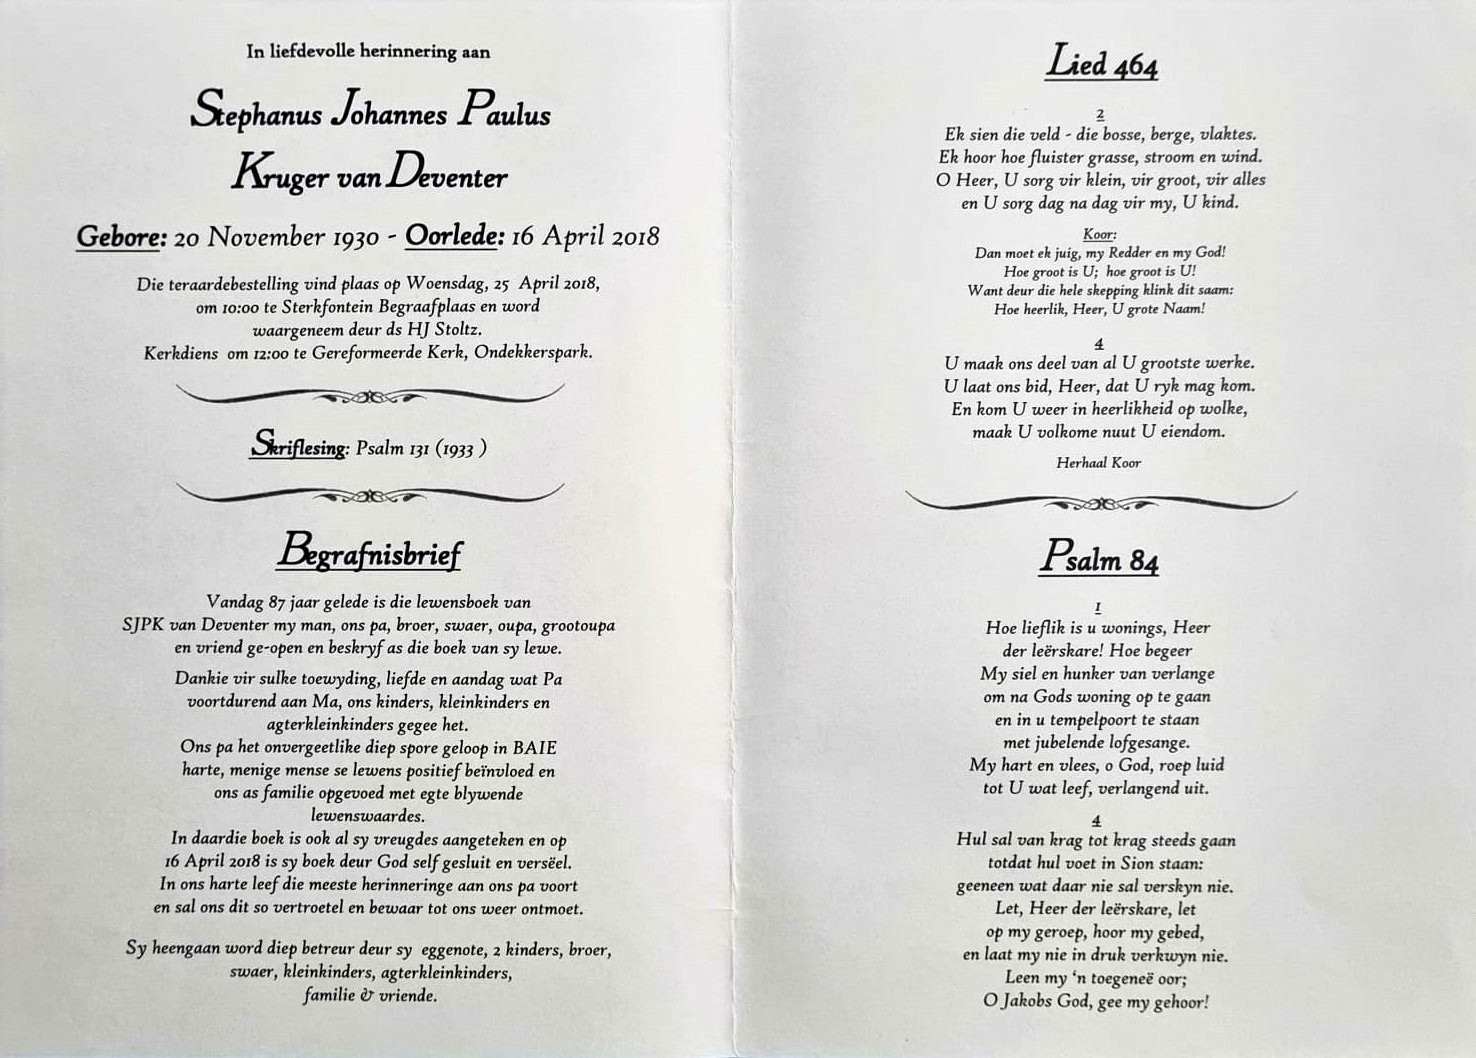 In liefdevolle herinnering aan
Stephanus Johannes Paulus
Kruger van Deventer
Gebore: 20 November 1930 - Oorlede: 16 April 2018
Die teraardebestelling vind plaas op Woensdag, 25 April 2018,
om 10:00 te Sterkfontein Begraafplaas en word
waargeneem deur ds HJ Stoltz.
Kerkdiens om 12:00 te Gereformeerde Kerk, Ondekkerspark.
Skriflesing: Psalm 131 (1933 )
Begrafnisbrief
Vandag 87 jaar gelede is die lewensboek van
SJPK van Deventer my man, ons pa, broer, swaer, oupa, grootoupa
en vriend ge-open en beskryf as die boek van sy lewe.
Dankie vir sulke toewyding, liefde en aandag wat Pa
voortdurend aan Ma, ons kinders, kleinkinders en
agterkleinkinders gegee het.
Ons pa het onvergeetlike diep spore geloop in BAIE
harte, menige mense se lewens positief beïnvloed en
ons as familie opgevoed met egte blywende
lewenswaardes.
In daardie boek is ook al sy vreugdes aangeteken en op
16 April 2018 is sy boek deur God self gesluit en versëel.
In ons harte leef die meeste herinneringe aan ons pa voort
en sal ons dit so vertroetel en bewaar tot ons weer ontmoet.
Sy heengaan word diep betreur deur sy eggenote, 2 kinders, broer,
swaer, kleinkinders, agterkleinkinders,
familie & vriende.
Lied 464
2
Ek sien die veld - die bosse, berge, vlaktes.
Ek hoor hoe fluister grasse, stroom en wind.
O Heer, U sorg vir klein, vir groot, vir alles
en U sorg dag na dag vir my, U kind.
Koor:
Dan moet ek juig, my Redder en my God!
Hoe groot is U; hoe groot is U!
Want deur die hele skepping klink dit saam:
Hoe heerlik, Heer, U grote Naam!
4
U maak ons deel van al U grootste werke.
U laat ons bid, Heer, dat U ryk mag kom.
En kom U weer in heerlikheid op wolke,
maak U volkome nuut U eiendom.
Herhaal Koor
Psalm 84
1
Hoe lieflik is u wonings, Heer
der leërskare! Hoe begeer
My siel en hunker van verlange
om na Gods woning op te gaan
en in u tempelpoort te staan
met jubelende lofgesange.
My hart en vlees, o God, roep luid
tot U wat leef, verlangend uit.
4
Hul sal van krag tot krag steeds gaan
totdat hul voet in Sion staan:
geeneen wat daar nie sal verskyn nie.
Let, Heer der leërskare, let
op my geroep, hoor my gebed,
en laat my nie in druk verkwyn nie.
Leen my ‘n toegeneë oor;
O Jakobs God, gee my gehoor!